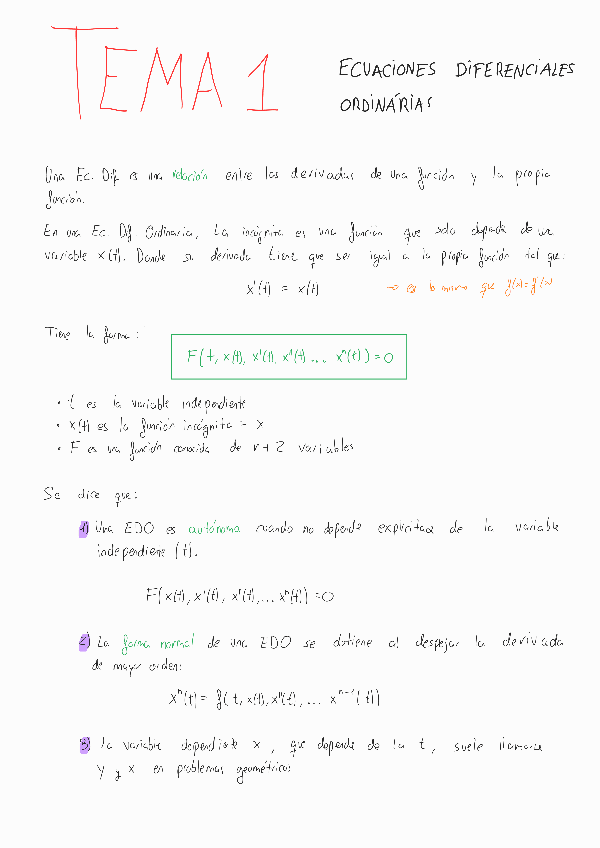 TEMA 1
ECUACIONES DIFERENCIALES
ORDINÁRIAS
Una Ec. Dif es una relación entre las derivadas de una función y la propia
función.
En una Ec. Dif Ordinaria, La incógnita es una función que solo depende de una
variable x(t). Donde su derivada tiene que ser igual a la propia función tal que:
x'(t) = x(t) → es lo mismo que f(x)=f'(x)
Tiene la forma:
F(t, x(t), x'(t), x''(t) ... xⁿ(t)) = 0
• t es la variable independiente
• x(t) es la función incógnita - x
• F es una función conocida de n+2 variables
Se dice que:
1) Una EDO es autónoma cuando no depende explicitae de la variable
independiene (t).
F(x(t), x'(t), x''(t), ... xⁿ(t)) = 0
2) La forma normal de una EDO se obtiene al despejar la derivada
de mayor orden:
xⁿ(t) = f(t, x(t), x'(t), ... xⁿ⁻¹(t))
3) La variable dependiete x, que depende de la t, suele llamarse
y y x en problemas geométricos